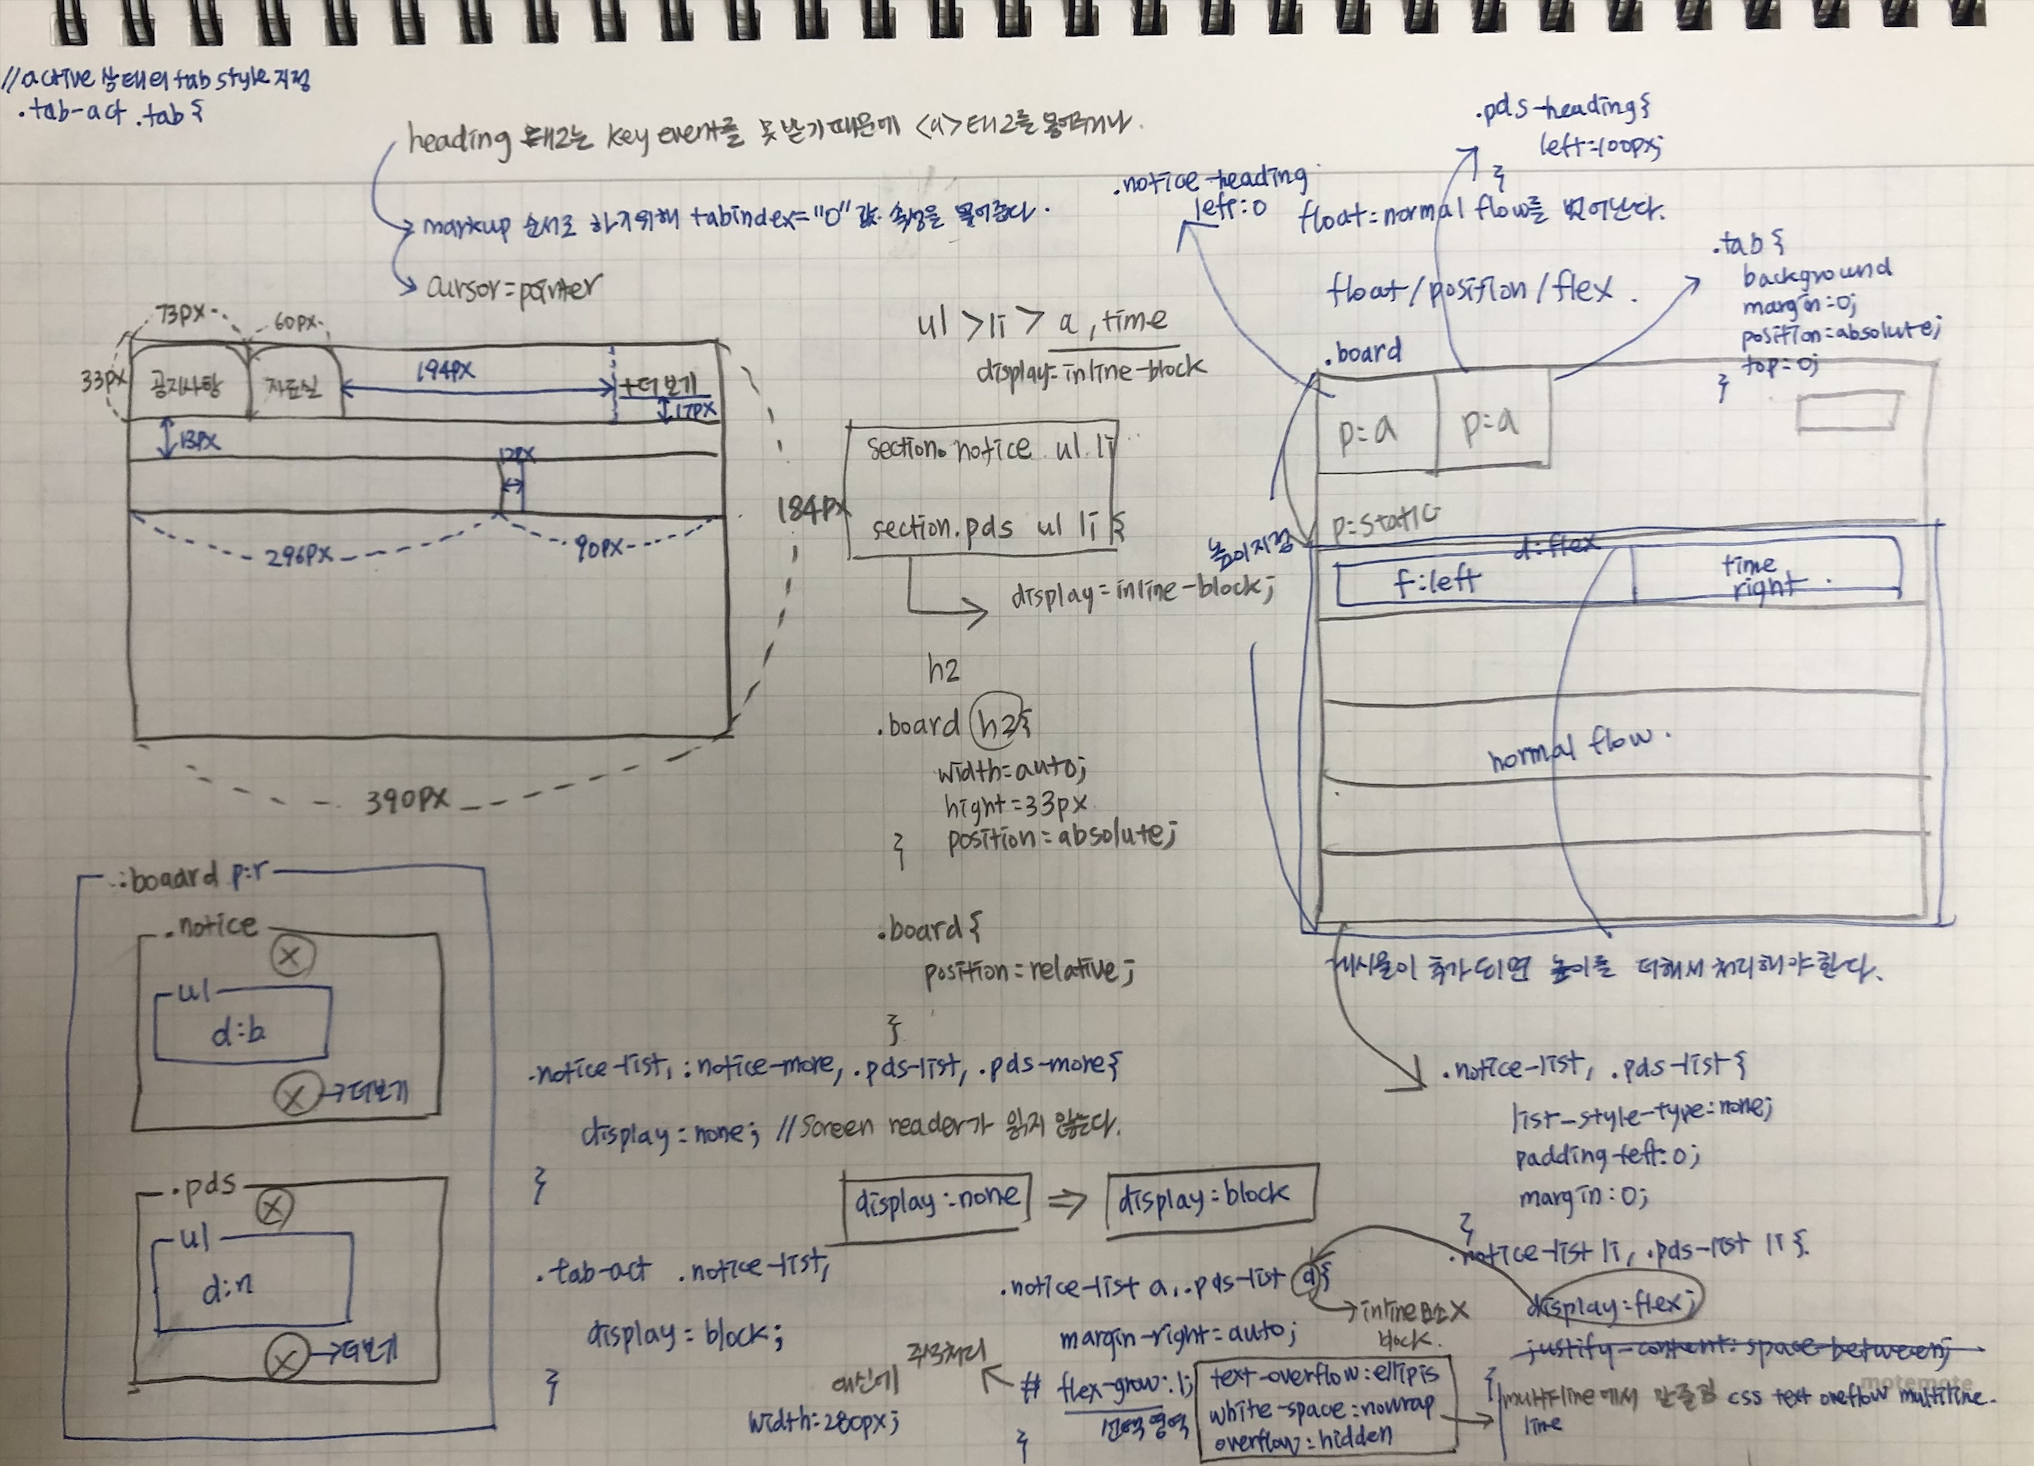 //active 상태의 tab style 지정
.tab-act .tab {
heading 태그는 key event를 못 받기 때문에 <a>태그를
markup 순서로 하기위해 tabindex="0" 값 속성을 물어준다.
cursor=pointer
.pds-heading{
left=100px;
}
.notice-heading
left:0
float=normal flow를 벗어난다.
float/position/flex.
.tab {
background
margin:0;
position=absolute;
top:0;
}
73px
60px
33px
공지사항
자료실
194px
+더보기
17px
13px
12px
296px
90px
184px
390px
ul >li > a, time
display=inline-block
section.notice ul li
section.pds ul li {
display=inline-block;
h2
.board h2{
width=auto;
hight=33px
position=absolute;
}
.board{
position=relative;
}
.board
p:a
p:a
p:static
높이지정
d:flex
f:left
time
right.
normal flow.
게시물이 추가되면 높이를 더해서 처리해야한다.
.boaard p:r
.notice
X
ul
d:b
X→더보기
.pds
X
ul
d:n
X→더보기
.notice-list, .notice-more, .pds-list, .pds-more{
display:none; //Screen reader가 읽지 않는다.
}
display:none ⇒ display:block
.tab-act .notice-list,
display=block;
}
.notice-list, .pds-list {
list-style-type:none;
padding-left:0;
margin:0;
}
.notice-list li, .pds-list li {
display=flex;
justify-content: space-between;
}
.notice-list a, .pds-list a{
→inline요소X
block.
margin-right=auto;
주석처리
# flex-grow:1;
대신에
width:280px;
}
text-overflow:ellipis
white-space:nowrap
overflow:hidden
multi-line에서 말줄임 css text oveflow multiline.
line
motemote